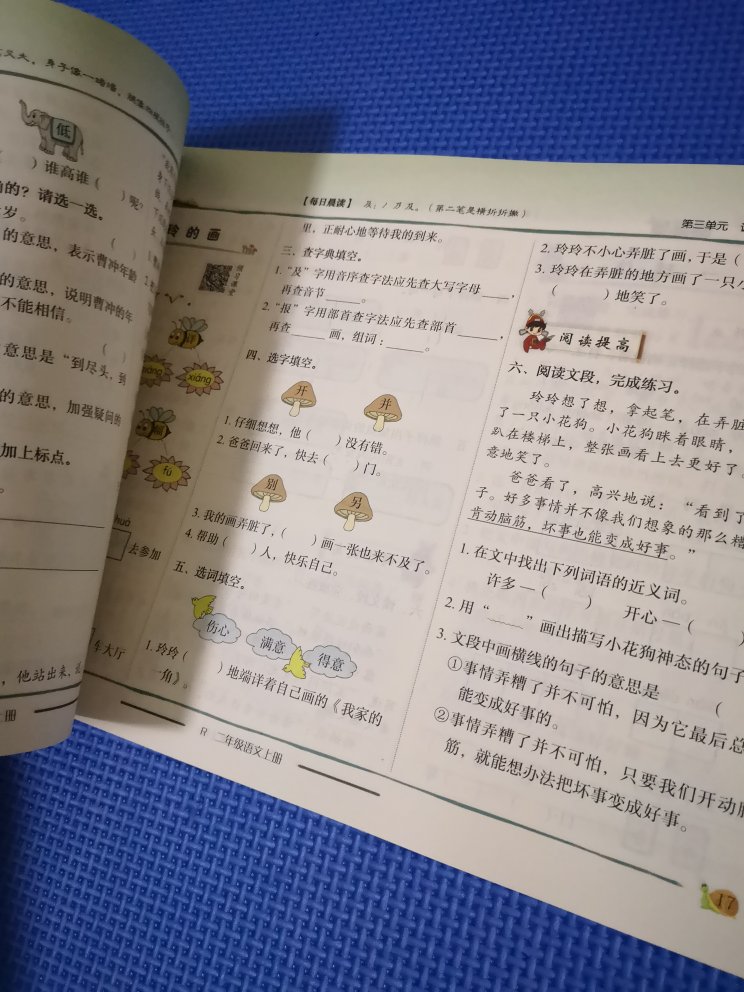 身子像一堵墙，
低
（ ）谁高谁（ ）呢？
的？请选一选。
岁。（ ）
的意思，表示曹冲年龄
的意思，说明曹冲的年
不能相信。
（ ）
意思是“到尽头，到
的意思，加强疑问的
加上标点。
。
，他站出来，
册
的画
xiáng
fú
去参加
车大厅
【每日晨读】 及：丿 乃 及。（第二笔是横折折撇）
里，正耐心地等待我的到来。
三、查字典填空。
1.“及”字用音序查字法应先查大写字母____，
再查音节_____。
2.“报”字用部首查字法应先查部首_____，
再查_____画，组词：_____。
四、选字填空。
开 并
1.仔细想想，他（ ）没有错。
2.爸爸回来了，快去（ ）门。
别 另
3.我的画弄脏了，（ ）画一张也来不及了。
4.帮助（ ）人，快乐自己。
五、选词填空。
伤心 满意 得意
1.玲玲（ ）地端详着自己画的《我家的
一角》。
R 二年级语文上册
第三单元
2.玲玲不小心弄脏了画，于是（
3.玲玲在弄脏的地方画了一只小
（ ）地笑了。
阅读提高
六、阅读文段，完成练习。
玲玲想了想，拿起笔，在弄脏
了一只小花狗。小花狗眯着眼睛，
趴在楼梯上，整张画看上去更好了。
意地笑了。
爸爸看了，高兴地说：“看到了
子。好多事情并不像我们想象的那么糟
肯动脑筋，坏事也能变成好事。”
1.在文中找出下列词语的近义词。
许多—（ ） 开心—（ ）
2.用“﹏﹏”画出描写小花狗神态的句子
3.文段中画横线的句子的意思是（
①事情弄糟了并不可怕，因为它最后总
能变成好事的。
②事情弄糟了并不可怕，只要我们开动脑
筋，就能想办法把坏事变成好事。
17